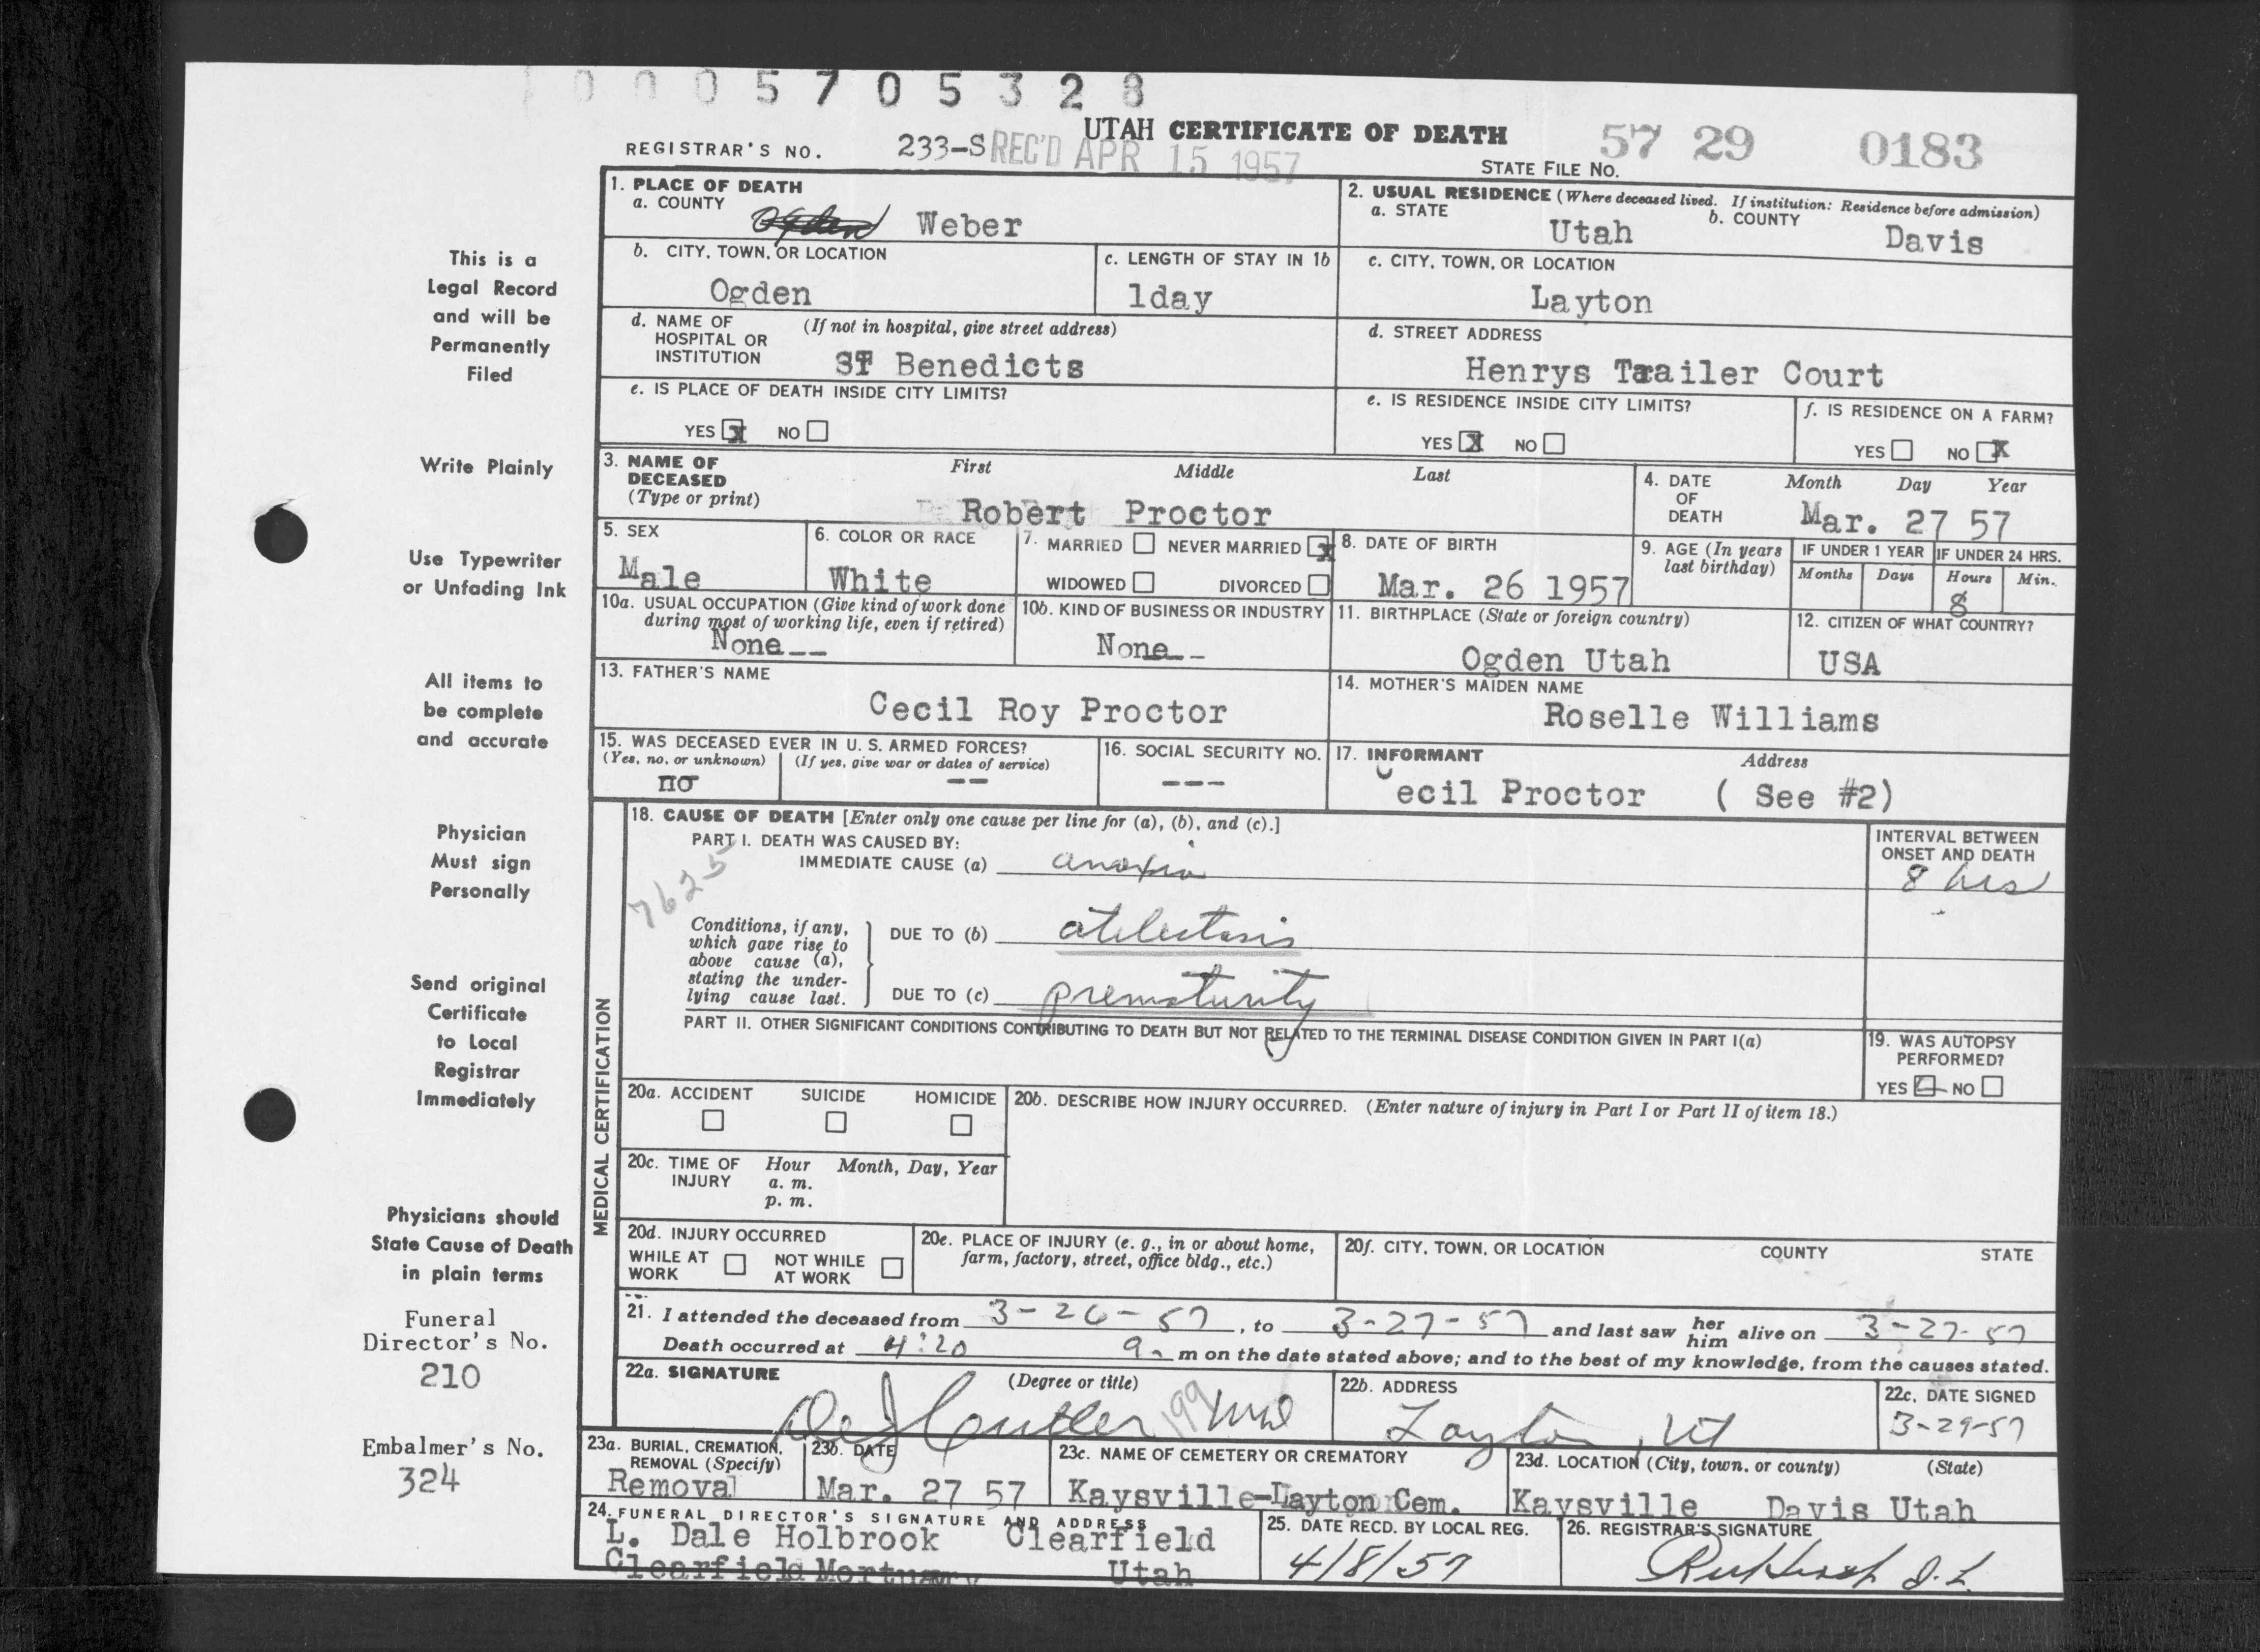 0 0 0 5 7 0 5 3 2 8
UTAH CERTIFICATE OF DEATH
REGISTRAR'S NO. 233-S REC'D APR 15 1957 STATE FILE NO. 57 29 0183
This is a
Legal Record
and will be
Permanently
Filed
Write Plainly
Use Typewriter
or Unfading Ink
All items to
be complete
and accurate
Physician
Must sign
Personally
Send original
Certificate
to Local
Registrar
Immediately
Physicians should
State Cause of Death
in plain terms
Funeral
Director's No.
210
Embalmer's No.
324
1. PLACE OF DEATH
a. COUNTY Ogden Weber
2. USUAL RESIDENCE (Where deceased lived. If institution: Residence before admission)
a. STATE Utah b. COUNTY Davis
b. CITY, TOWN, OR LOCATION
Ogden
c. LENGTH OF STAY IN 1b
1day
c. CITY, TOWN, OR LOCATION
Layton
d. NAME OF HOSPITAL OR INSTITUTION (If not in hospital, give street address)
ST Benedicts
d. STREET ADDRESS
Henrys Trailer Court
e. IS PLACE OF DEATH INSIDE CITY LIMITS?
YES X NO
e. IS RESIDENCE INSIDE CITY LIMITS?
YES X NO
f. IS RESIDENCE ON A FARM?
YES NO X
3. NAME OF DECEASED (Type or print) First Middle Last
Robert Proctor
4. DATE OF DEATH Month Day Year
Mar. 27 57
5. SEX
Male
6. COLOR OR RACE
White
7. MARRIED NEVER MARRIED X
WIDOWED DIVORCED
8. DATE OF BIRTH
Mar. 26 1957
9. AGE (In years last birthday)
IF UNDER 1 YEAR IF UNDER 24 HRS.
Months Days Hours Min.
8
10a. USUAL OCCUPATION (Give kind of work done during most of working life, even if retired)
None--
10b. KIND OF BUSINESS OR INDUSTRY
None--
11. BIRTHPLACE (State or foreign country)
Ogden Utah
12. CITIZEN OF WHAT COUNTRY?
USA
13. FATHER'S NAME
Cecil Roy Proctor
14. MOTHER'S MAIDEN NAME
Roselle Williams
15. WAS DECEASED EVER IN U. S. ARMED FORCES?
(Yes, no, or unknown) (If yes, give war or dates of service)
no --
16. SOCIAL SECURITY NO.
---
17. INFORMANT Address
Cecil Proctor ( See #2)
MEDICAL CERTIFICATION
18. CAUSE OF DEATH [Enter only one cause per line for (a), (b), and (c).]
PART I. DEATH WAS CAUSED BY:
IMMEDIATE CAUSE (a) anoxia
INTERVAL BETWEEN ONSET AND DEATH
8 hrs
7625
Conditions, if any, which gave rise to above cause (a), stating the underlying cause last.
DUE TO (b) atelectasis
DUE TO (c) prematurity
PART II. OTHER SIGNIFICANT CONDITIONS CONTRIBUTING TO DEATH BUT NOT RELATED TO THE TERMINAL DISEASE CONDITION GIVEN IN PART I(a)
19. WAS AUTOPSY PERFORMED?
YES NO
20a. ACCIDENT SUICIDE HOMICIDE
20b. DESCRIBE HOW INJURY OCCURRED. (Enter nature of injury in Part I or Part II of item 18.)
20c. TIME OF INJURY Hour Month, Day, Year
a. m.
p. m.
20d. INJURY OCCURRED
WHILE AT WORK NOT WHILE AT WORK
20e. PLACE OF INJURY (e. g., in or about home, farm, factory, street, office bldg., etc.)
20f. CITY, TOWN, OR LOCATION COUNTY STATE
21. I attended the deceased from 3-26-57, to 3-27-57 and last saw her him alive on 3-27-57
Death occurred at 4:20 a. m on the date stated above; and to the best of my knowledge, from the causes stated.
22a. SIGNATURE (Degree or title)
199
22b. ADDRESS
Layton, Ut
22c. DATE SIGNED
3-29-57
23a. BURIAL, CREMATION, REMOVAL (Specify)
Removal
23b. DATE
Mar. 27 57
23c. NAME OF CEMETERY OR CREMATORY
Kaysville-Layton Cem.
23d. LOCATION (City, town, or county) (State)
Kaysville Davis Utah
24. FUNERAL DIRECTOR'S SIGNATURE AND ADDRESS
L. Dale Holbrook Clearfield
Clearfield Mortuary Utah
25. DATE RECD. BY LOCAL REG.
4/8/57
26. REGISTRAR'S SIGNATURE